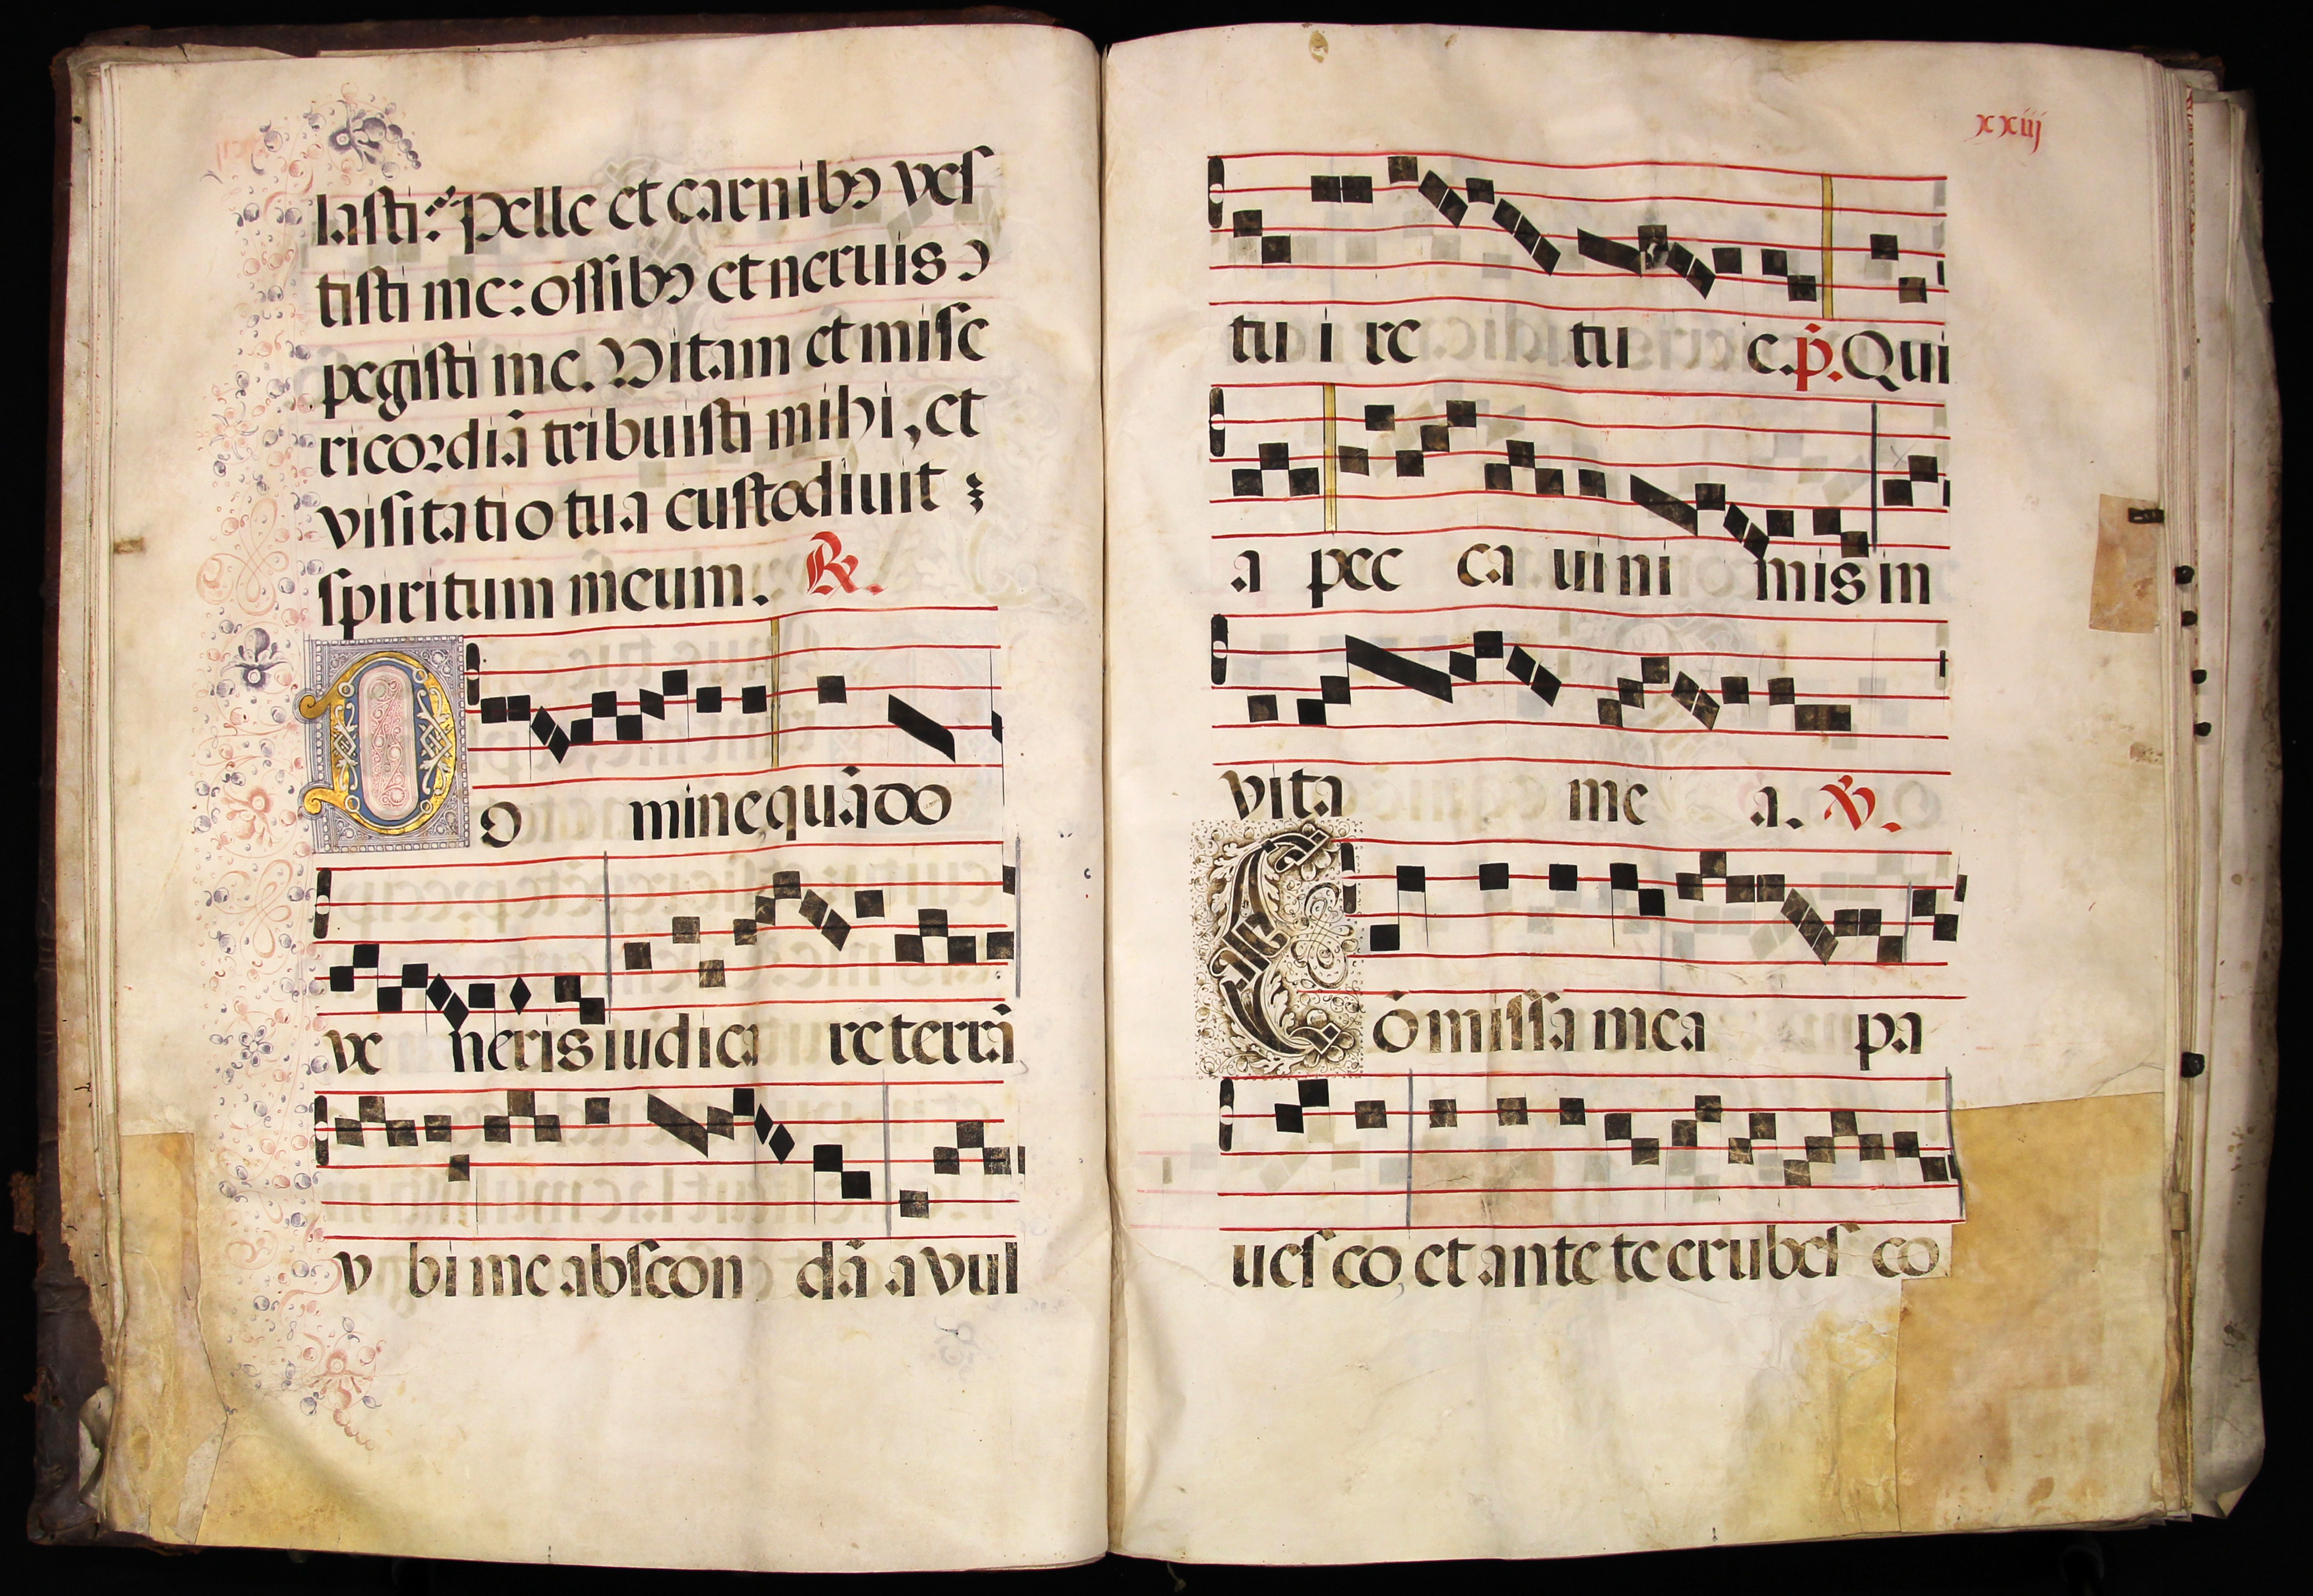 lasti? Pelle et carnibꝰ ves
tisti me: ossibꝰ et neruis ↄ
pegisti me. Vitam et mise
ricordiā tribuisti mihi, et
visitatio tua custodiuit
spiritum meum. ℟.
Do mine quādo
ve neris iudica re terrā
v bi me abscon dā a vul
xxiij
tu i re tu e. p̄. Qui
a pec ca ui ni mis in
vita me a. ℣.
Cōmissa mea pa
ues co, et ante te erubes co